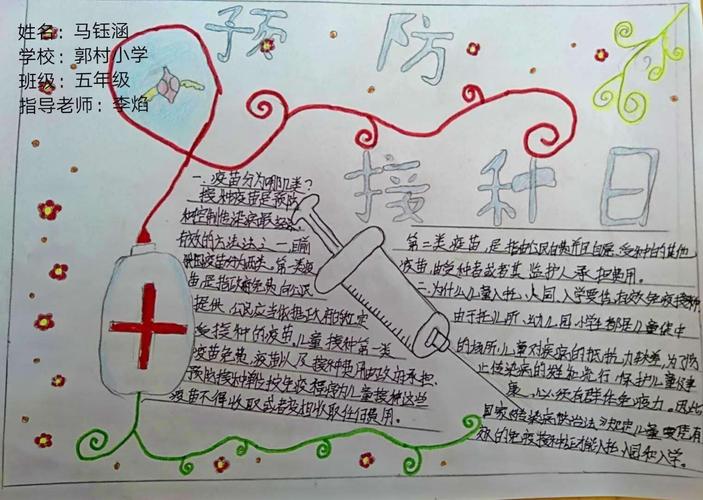 姓名：马钰涵
学校：郭村小学
班级：五年级
指导老师：李焰
预防
接种日
一、疫苗分为哪几类？
接种疫苗是预防
和控制传染病最
有效的方法之一，目前
疫苗分为两类。第一类疫
苗，是指政府免费向公民
提供，公民应当依照政府的规定
受接种的疫苗，儿童接种第一类
疫苗免费，疫苗以及接种费用由政府承担，
预防接种单位在免疫程序内为儿童接种这些
疫苗不得收取或者变相收取任何费用。
第二类疫苗，是指由公民自费并且自愿受种的其他
疫苗，由受种者或者其监护人承担费用。
二、为什么儿童入托、入园、入学要
由于托儿所、幼儿园、小学都是儿童集中
的场所，儿童对疾病的抵抗力较差，为了防
止传染病的发生流行，保护儿童
康，必须有群体免疫力。因此
国家《传染病防治法》规定儿童要凭有
效的免疫接种证才能入托、入园和入学。